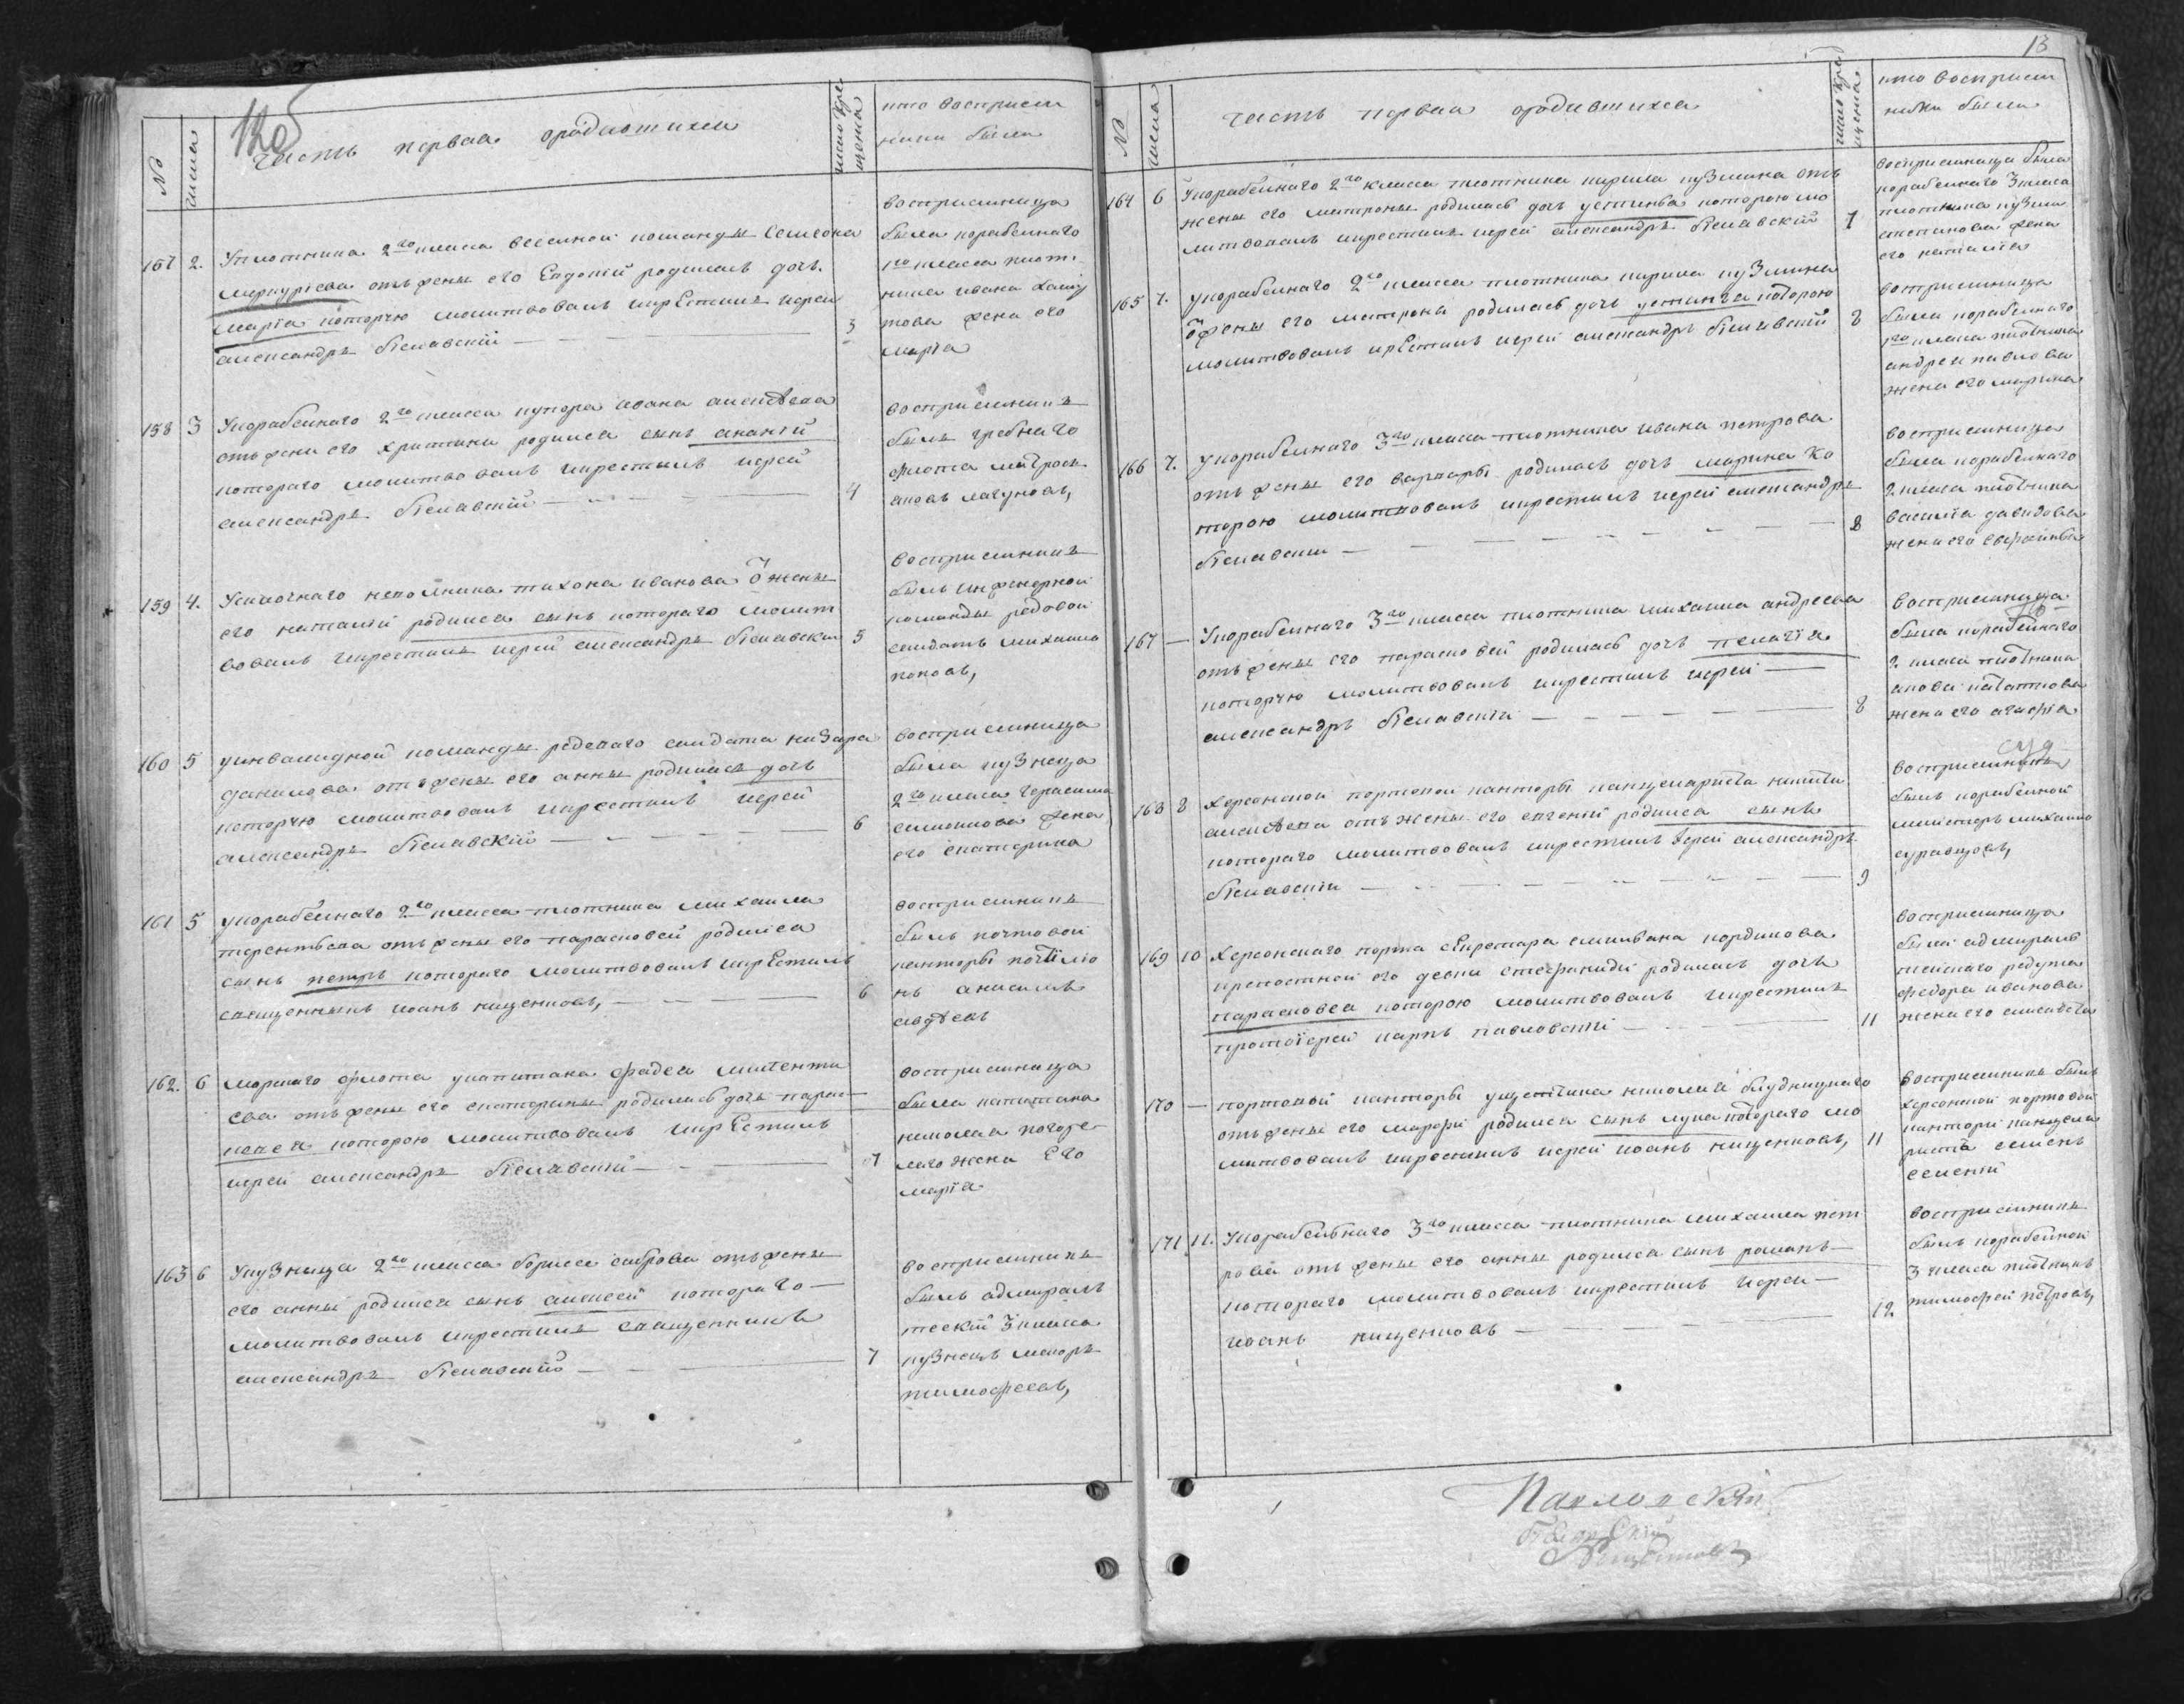 12об
№
числа
часть первая ородившихся
число кре
щения
кто восприем
ники были
157 2. У плотника 2го класа весельной команды Семеона
меркуріева отъ жены его Евдокіи родилась дочь
марія которую молитвовалъ икрестилъ иерей
александръ бѣлавскій 3
восприемница
была корабелнаго
1го класса плот
ника ивана
жена его
марія
158 3 Укорабелнаго 2го класса купора ивана алексѣева
отъ жены его христины родился сынъ ананій
котораго молитвовалъ икрестилъ иерей
александръ бѣлавскій 4
восприемникъ
былъ гребнаго
флота матрозъ
159 4. тихона иванова ѿ жены
его наталіи родился сынъ котораго молит
вовалъ икрестилъ иерей александръ бѣлавскій 5
восприемникъ
былъ инженерной
команды редовой
салдатъ михаило
поповъ,
160 5 уинвалидной команды редоваго салдата назара
данилова отъ жены его анны родилась дочь
которую молитвовалъ икрестилъ иерей
александръ бѣлавскій 6
восприемница
была кузнеца
2го класса герасима
жена
его екатерина
161 5 укорабелнаго 2го класса плотника михаила
терентьева отъ жены его парасковеи родился
сынъ петръ котораго молитвовалъ икрестилъ
священникъ иоанъ нищенковъ, 6
восприемникъ
былъ почтовой
канторы почталіо
нъ анисимъ
162. 6 морскаго флота укапитана фадея
ева отъ жены его екатерины родилась дочь парас
кевея которую молитвовалъ икрестилъ
иерей александръ бѣлавскій 7
восприемница
была капитана
николая погоре
лаго жена Его
марія
163 6 Укузнеца 2го класса бориса отъ жены
его анны родился сынъ алексей котораго
молитвовалъ икрестилъ священникъ
александръ бѣлавскій 7
восприемникъ
былъ адмирал
тескій 3 класса
кузнецъ
тимофеевъ,
13
№
числа
часть первая ородившихся
число кре
щения
кто восприем
ники были
164 6 Укорабелнаго 2го класса плотника кирила кузмина отъ
жены его матроны родилась дочь устинья которою мо
литвовалъ икрестилъ иерей александръ бѣлавскій 7
восприемница была
корабелнаго 3 класа
плотника кузмы
степанова жена
его наталія
165 7. укорабелнаго 2го класса плотника кирила кузмина
ѿ жены его матроны родилась дочь устинья которою
молитвовалъ икрестилъ иерей александръ бѣлавскій 8
восприемница
была корабелнаго
1го класа плотника
андрея павлова
жена его марина
166 7. укорабелнаго 3го класса плотника ивана петрова
отъ жены его варвары родилась дочь марина ко
торою молитвовалъ икрестилъ иерей александръ
бѣлавскій 8
восприемница
была корабелнаго
2 класа плотника
василія давидова
жена его
167 — Укорабелнаго 3го класса плотника михаила андреева
отъ жены его парасковеи родилась дочь пелагія
которую молитвовалъ икрестилъ иерей
александръ бѣлавскій 8
восприемница
была корабелнаго
2 класа плотника
жена его агафія
168 8 херсонской портовой канторы канцеляриста никиты
алексѣева отъ жены его евгеніи родился сынъ
котораго молитвовалъ икрестилъ иерей александръ
бѣлавскій 9
восприемникъ
былъ корабелной
михаило
169 10 Херсонскаго порта секретара
крепостной его девки родилась дочь
парасковея которою молитвовалъ икрестилъ
протоіерей карпъ павловскій 11
восприемница
была адмирал
тейскаго
федора иванова
жена его елисавета
170 — портовой канторы николая
отъ жены его марфы родился сынъ лука котораго мо
литвовалъ икрестилъ иерей иоанъ нищенковъ, 11
восприемникъ былъ
херсонской портовой
канторы канцеля
ристъ семенъ
171 11. Укорабелнаго 3го класса плотника михаила пет
рова отъ жены его анны родился сынъ романъ
котораго молитвовалъ икрестилъ иерей
иоанъ нищенковъ 12
восприемникъ
былъ корабелной
3 класа плотникъ
тимофей петровъ,
Павловскій
Бѣлавскій
Нищенковъ